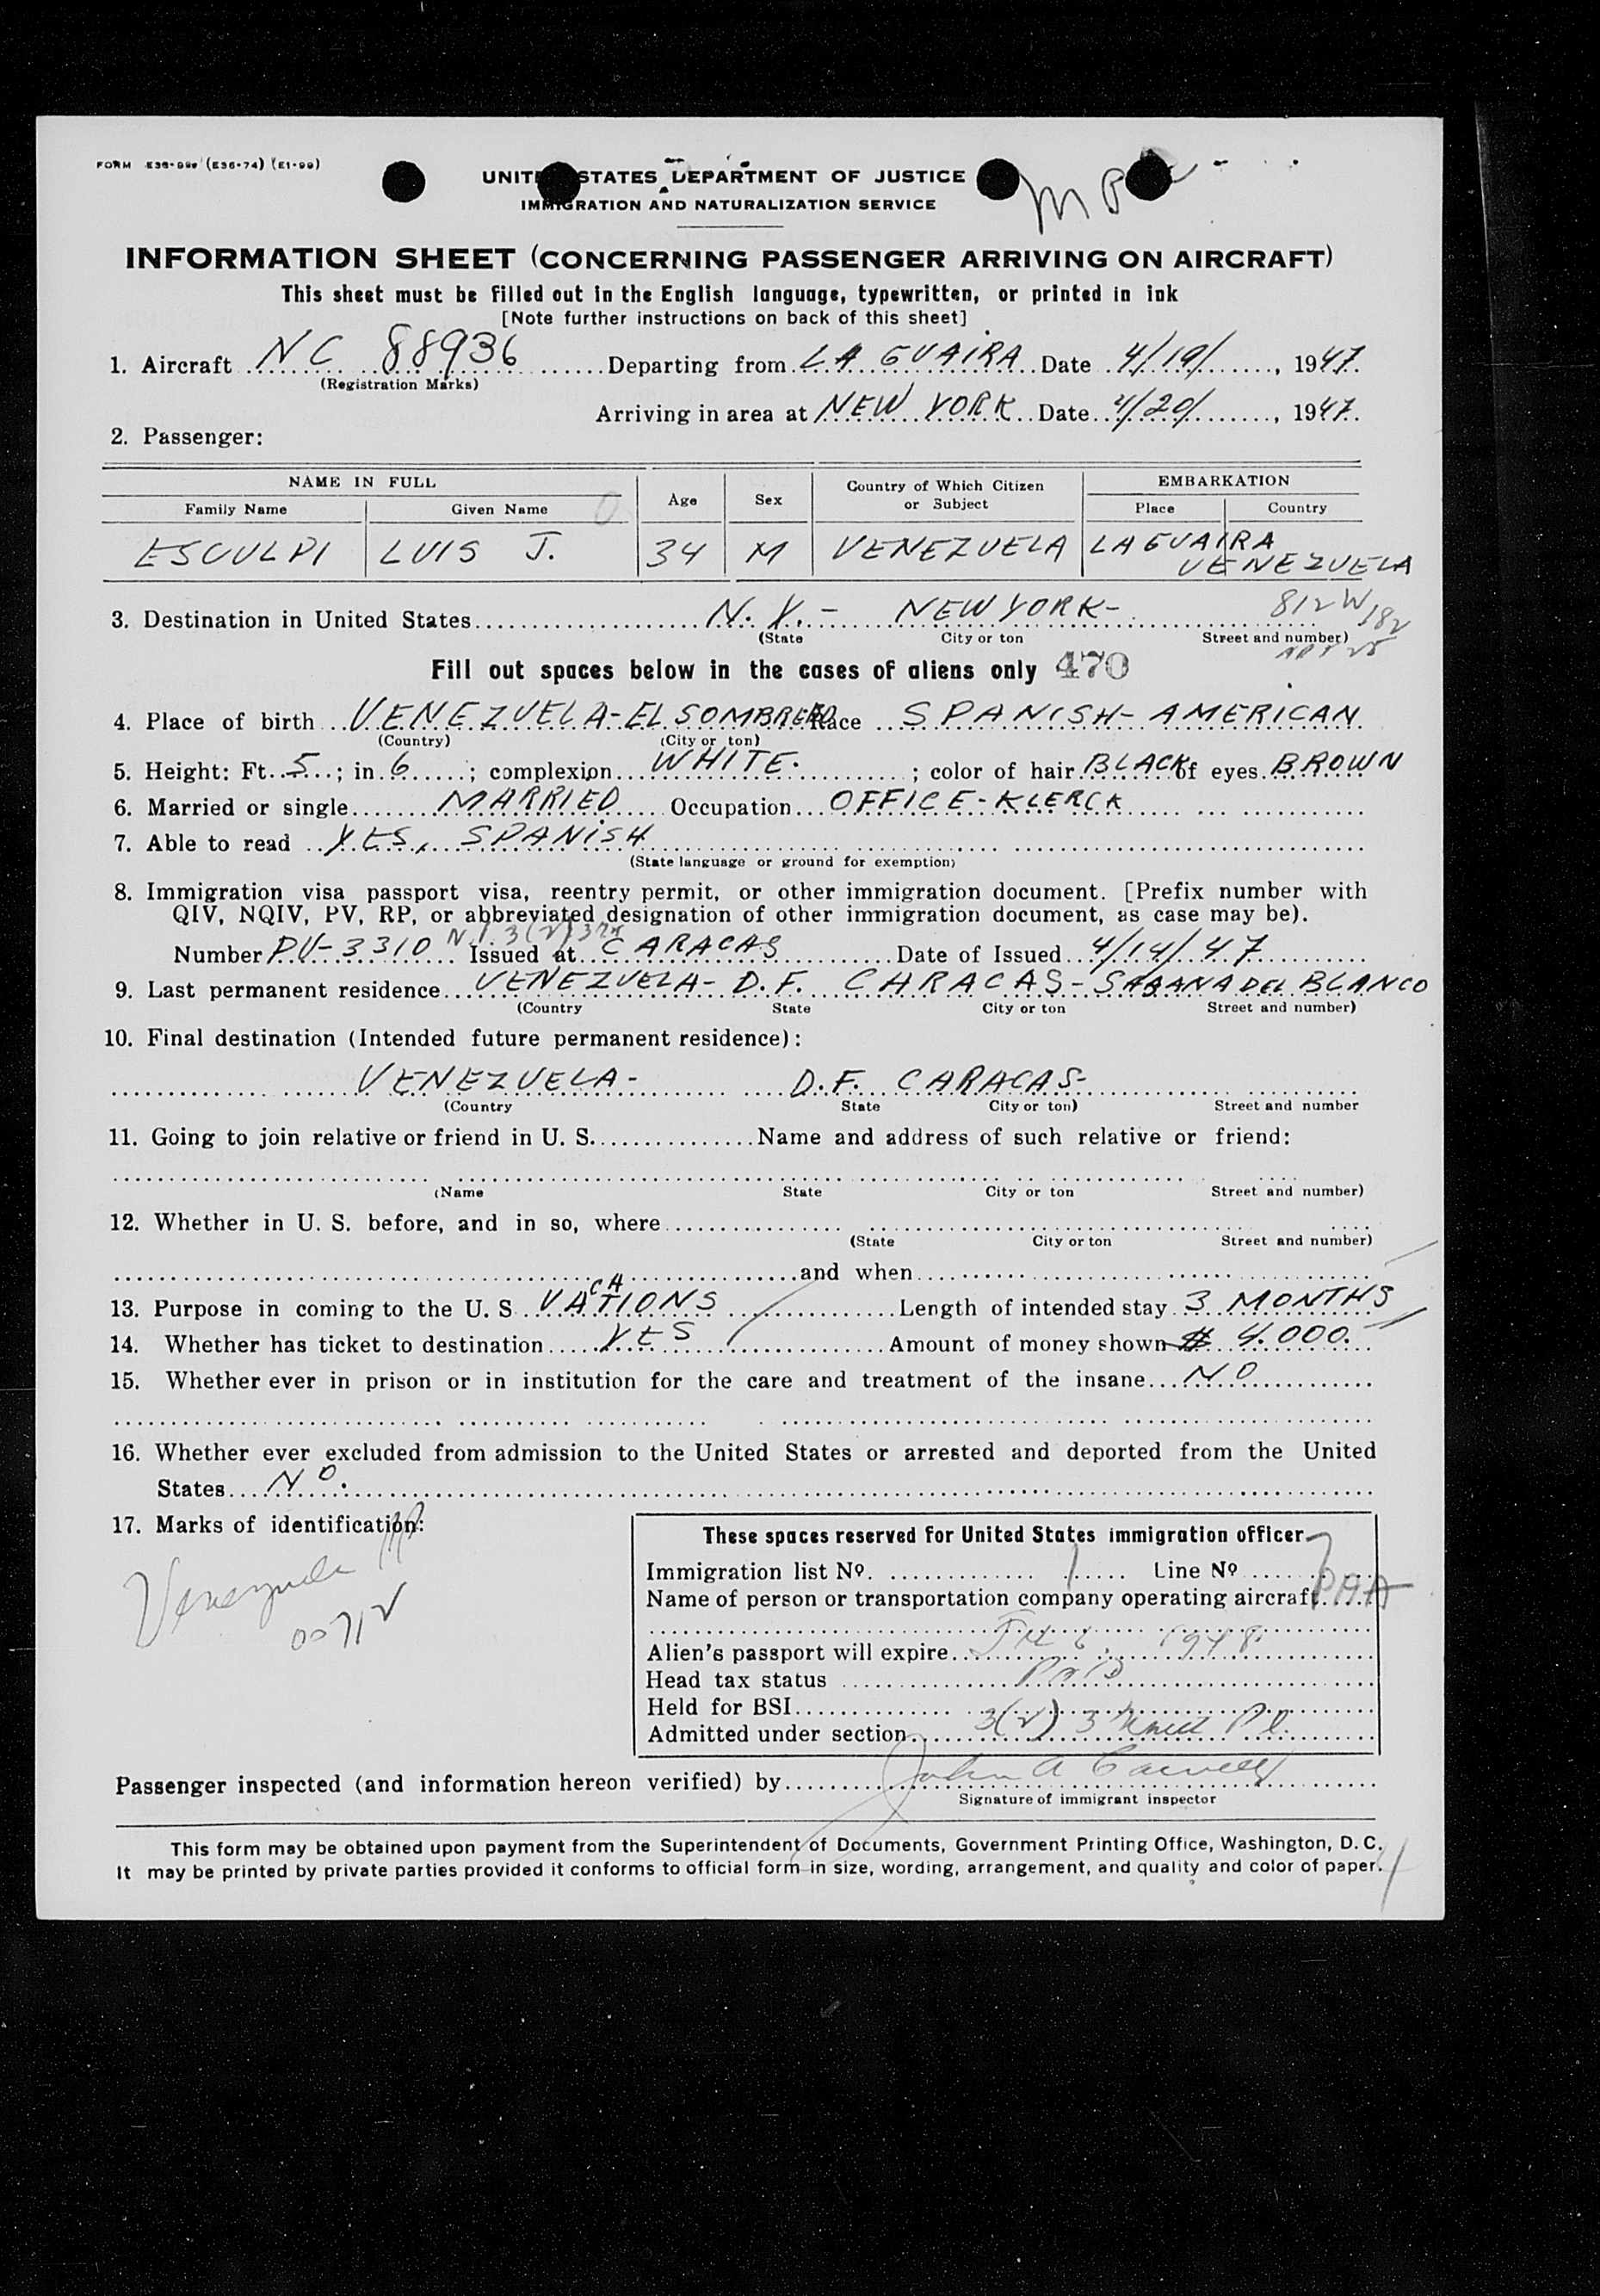 FORM (E36-74) (E1-99)
UNIT STATES DEPARTMENT OF JUSTICE
IMMIGRATION AND NATURALIZATION SERVICE
INFORMATION SHEET (CONCERNING PASSENGER ARRIVING ON AIRCRAFT)
This sheet must be filled out in the English language, typewritten, or printed in ink
[Note further instructions on back of this sheet]
1. Aircraft NC 88936 Departing from LA GUAIRA Date 4/19/, 1947.
(Registration Marks)
Arriving in area at NEW YORK Date 4/20/, 1947.
2. Passenger:
NAME IN FULL Age Sex Country of Which Citizen or Subject EMBARKATION
Family Name Given Name Place Country
ESCULPI LUIS J. 34 M VENEZUELA LA GUAIRA
VENEZUELA
3. Destination in United States N.Y.- NEW YORK- 812 W 182
(State City or ton Street and number)
APT 25
Fill out spaces below in the cases of aliens only 470
4. Place of birth VENEZUELA-EL SOMBRERO Race SPANISH-AMERICAN
(Country) (City or ton)
5. Height: Ft. 5; in. 6; complexion WHITE.; color of hair BLACK of eyes BROWN
6. Married or single MARRIED Occupation OFFICE-KLERCK
7. Able to read YES, SPANISH
(State language or ground for exemption)
8. Immigration visa passport visa, reentry permit, or other immigration document. [Prefix number with
QIV, NQIV, PV, RP, or abbreviated designation of other immigration document, as case may be).
Number PV-3310 Issued at CARACAS Date of Issued 4/14/47
9. Last permanent residence VENEZUELA- D.F. CARACAS-SABANA DEL BLANCO
(Country State City or ton Street and number)
10. Final destination (Intended future permanent residence):
VENEZUELA- D.F. CARACAS-
(Country State City or ton) Street and number
11. Going to join relative or friend in U. S. Name and address of such relative or friend:
(Name State City or ton Street and number)
12. Whether in U. S. before, and in so, where
(State City or ton Street and number)
and when
13. Purpose in coming to the U. S VACATIONS Length of intended stay 3 MONTHS
14. Whether has ticket to destination YES Amount of money shown $ 4.000.
15. Whether ever in prison or in institution for the care and treatment of the insane NO
16. Whether ever excluded from admission to the United States or arrested and deported from the United
States NO.
17. Marks of identification:
Venezuela
00712
These spaces reserved for United States immigration officer
Immigration list Nº. 1 Line Nº 7
Name of person or transportation company operating aircraft PAA
Alien's passport will expire 1948
Head tax status Paid
Held for BSI
Admitted under section 3(2) 3
Passenger inspected (and information hereon verified) by John A
Signature of immigrant inspector
This form may be obtained upon payment from the Superintendent of Documents, Government Printing Office, Washington, D. C.
It may be printed by private parties provided it conforms to official form in size, wording, arrangement, and quality and color of paper.